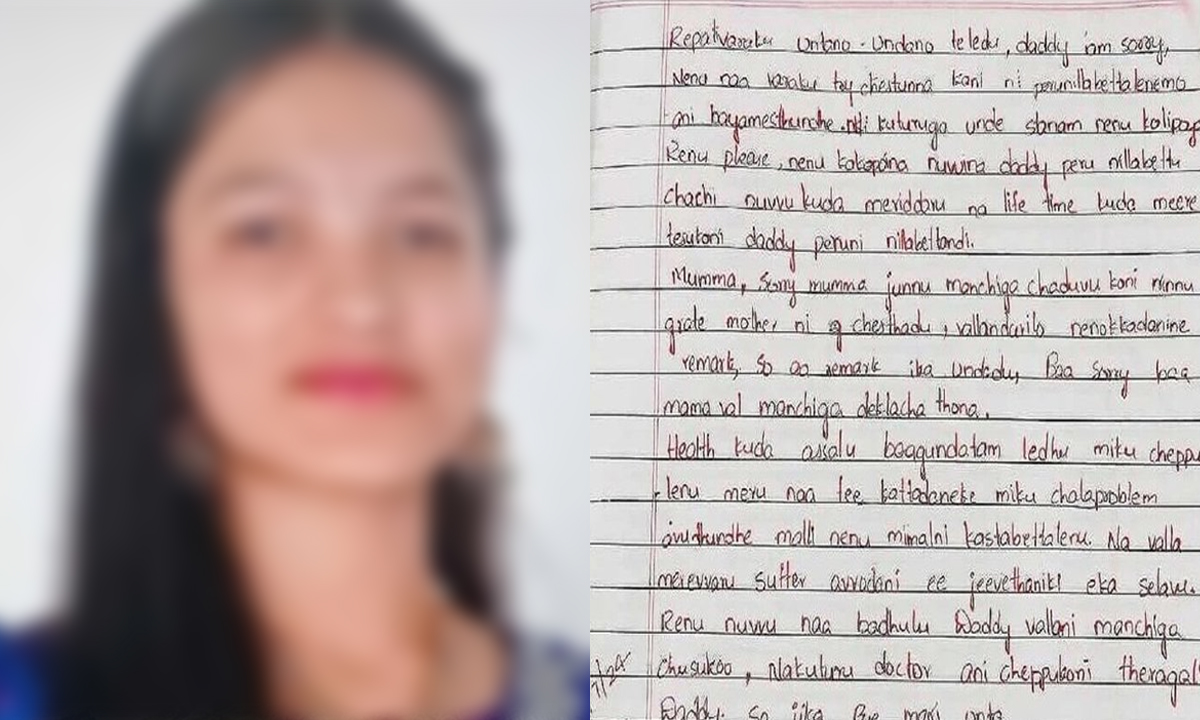 Repativaraku untano-undano teledu, daddy iam sorry,
Nenu naa varaku try chestunna kani ni perunillabettalenemo
ani bayamesthunche. nki kuturuga unde stanam nenu kolipoy
Renu please, nenu kakapoina nuvvina daddy peru nillabettu
chachi nuvvu kuda meriddaru na life time kuda meere
tesukoni daddy peruni nilabettandi.
Mumma, sorry mumma junnu manchiga chaduvu kani ninnu
grate mother ni chesthadu, vallandarilo nenokkadanine
remark, so aa remark ika undadu, Baa sorry baa
mama val manchiga deklacha thona.
Health kuda assalu baagundatam ledhu miku cheppu
lenu meru naa fee kattadaneke miku chalaproblem
avuthundhe malli nenu mimalni kastabettalenu. Na valla
merevvaru suffer avvodani ee jeevethaniki eka selavu.
Renu nuvvu naa badhulu Daddy vallani manchiga
chusukoo, Nakuturu doctor ani cheppukoni theragal
Daddy. so ika Bye mari unta